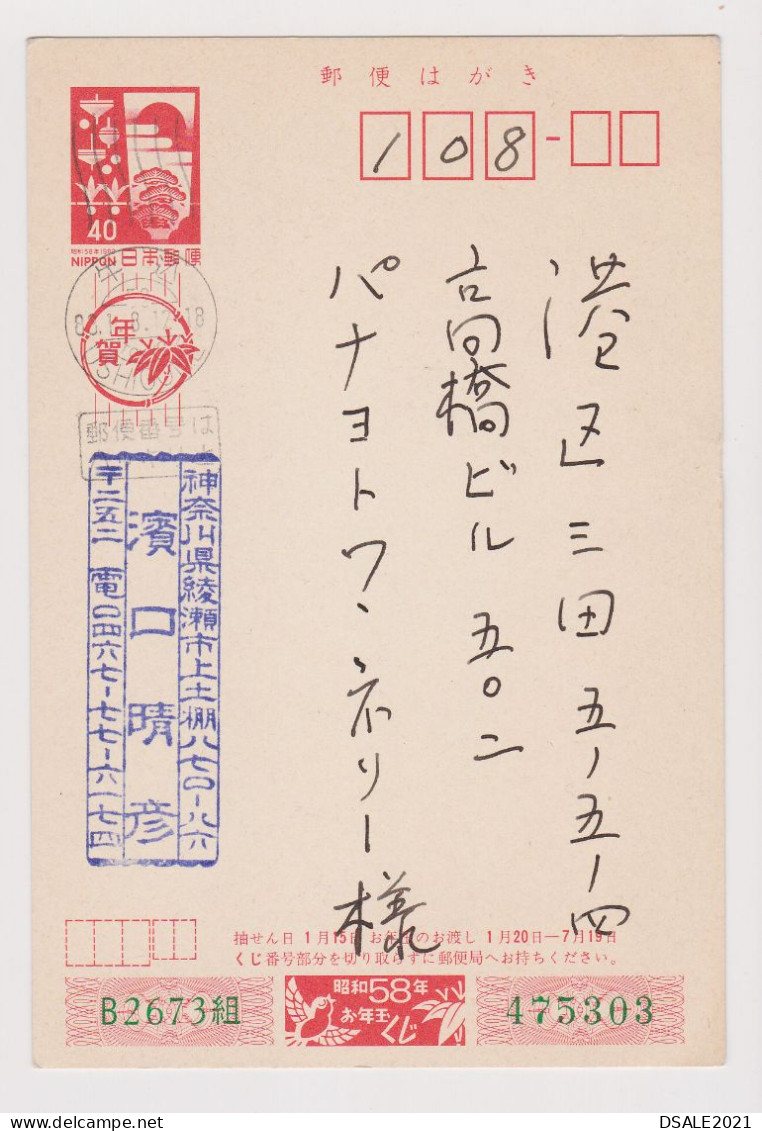 郵便はがき
108
40
昭和58年1983
NIPPON 日本郵便
年賀
郵便番号は
港区三田五ノ五ノ四
高橋ビル 五〇二
パナヨトワ・ネリー様
神奈川県綾瀬市上土棚八七〇-八六
濱口晴彦
〒二五二 電〇四六七-七七-六一七四
抽せん日 1月15日 お年玉のお渡し 1月20日—7月19日
くじ番号部分を切り取らずに郵便局へお持ちください。
B2673組
昭和58年
お年玉
くじ
475303
DSALE2021